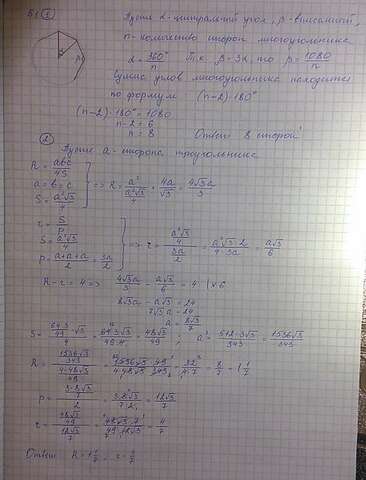 Б1 ①
Пусть α-центральный угол, β-внутренний,
n-количество сторон многоугольника
α = 360°/n Т.к. β=3α, то β = 1080/n
Сумма углов многоугольника находится
по формуле (n-2)·180°
(n-2)·180° = 1080
n-2 = 6
n = 8 Ответ 8 сторон
②
Пусть a-сторона треугольника
R = abc/4S
a = b = c
S = a²√3/4
=> R = a³/a²√3/4 = 4a/√3 = 4√3a/3
r = S/p
S = a²√3/4
p = a+a+a/2 = 3a/2
=> r = a²√3/4 / 3a/2 = a²√3·2/4·3a = a√3/6
R-r = 4 => 4√3a/3 - a√3/6 = 4 |×6
8√3a - a√3 = 24
7√3a = 24
a = 8√3/7
S = 64·3/49·√3/4 = 64·3√3/49·4 = 48√3/49; a³ = 512·3√3/343 = 1536√3/343
R = 1536√3/343 / 4·48√3/49 = 1536√3·49/4·48√3·343 = 32/4·7 = 8/7 = 1 1/7
p = 3·8√3/7 / 2 = 3·8√3/7·2 = 12√3/7
r = 48√3/49 / 12√3/7 = 48√3·7/49·12√3 = 4/7
Ответ R = 1 1/7, r = 4/7